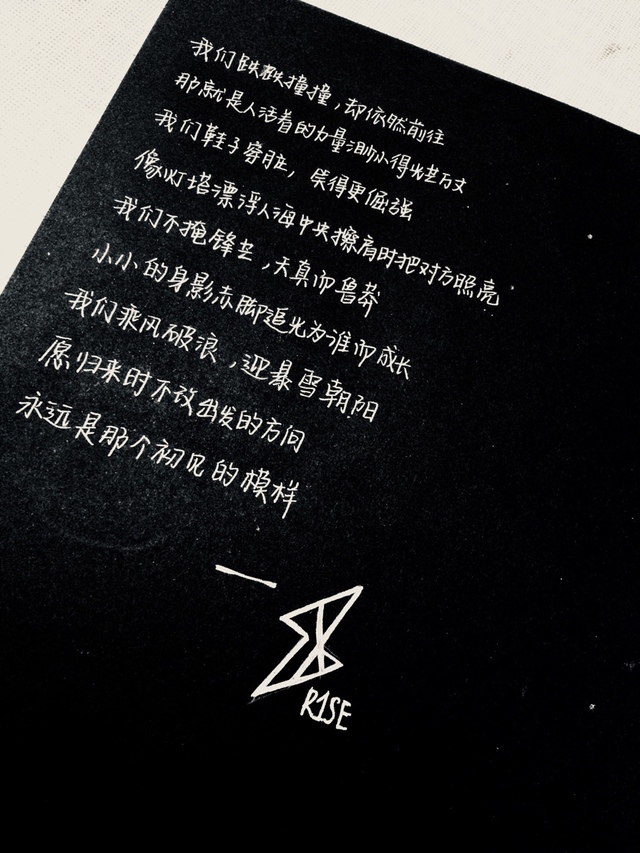 我们跌跌撞撞，却依然前往
那就是人活着的力量渺小得光芒万丈
我们鞋子穿脏，笑得更倔强
像灯塔漂浮人海中央擦肩时把对方照亮
我们不掩锋芒，天真而鲁莽
小小的身影赤脚追光为谁而成长
我们乘风破浪，迎暴雪朝阳
愿归来时不改出发的方向
永远是那个初见的模样
R1SE